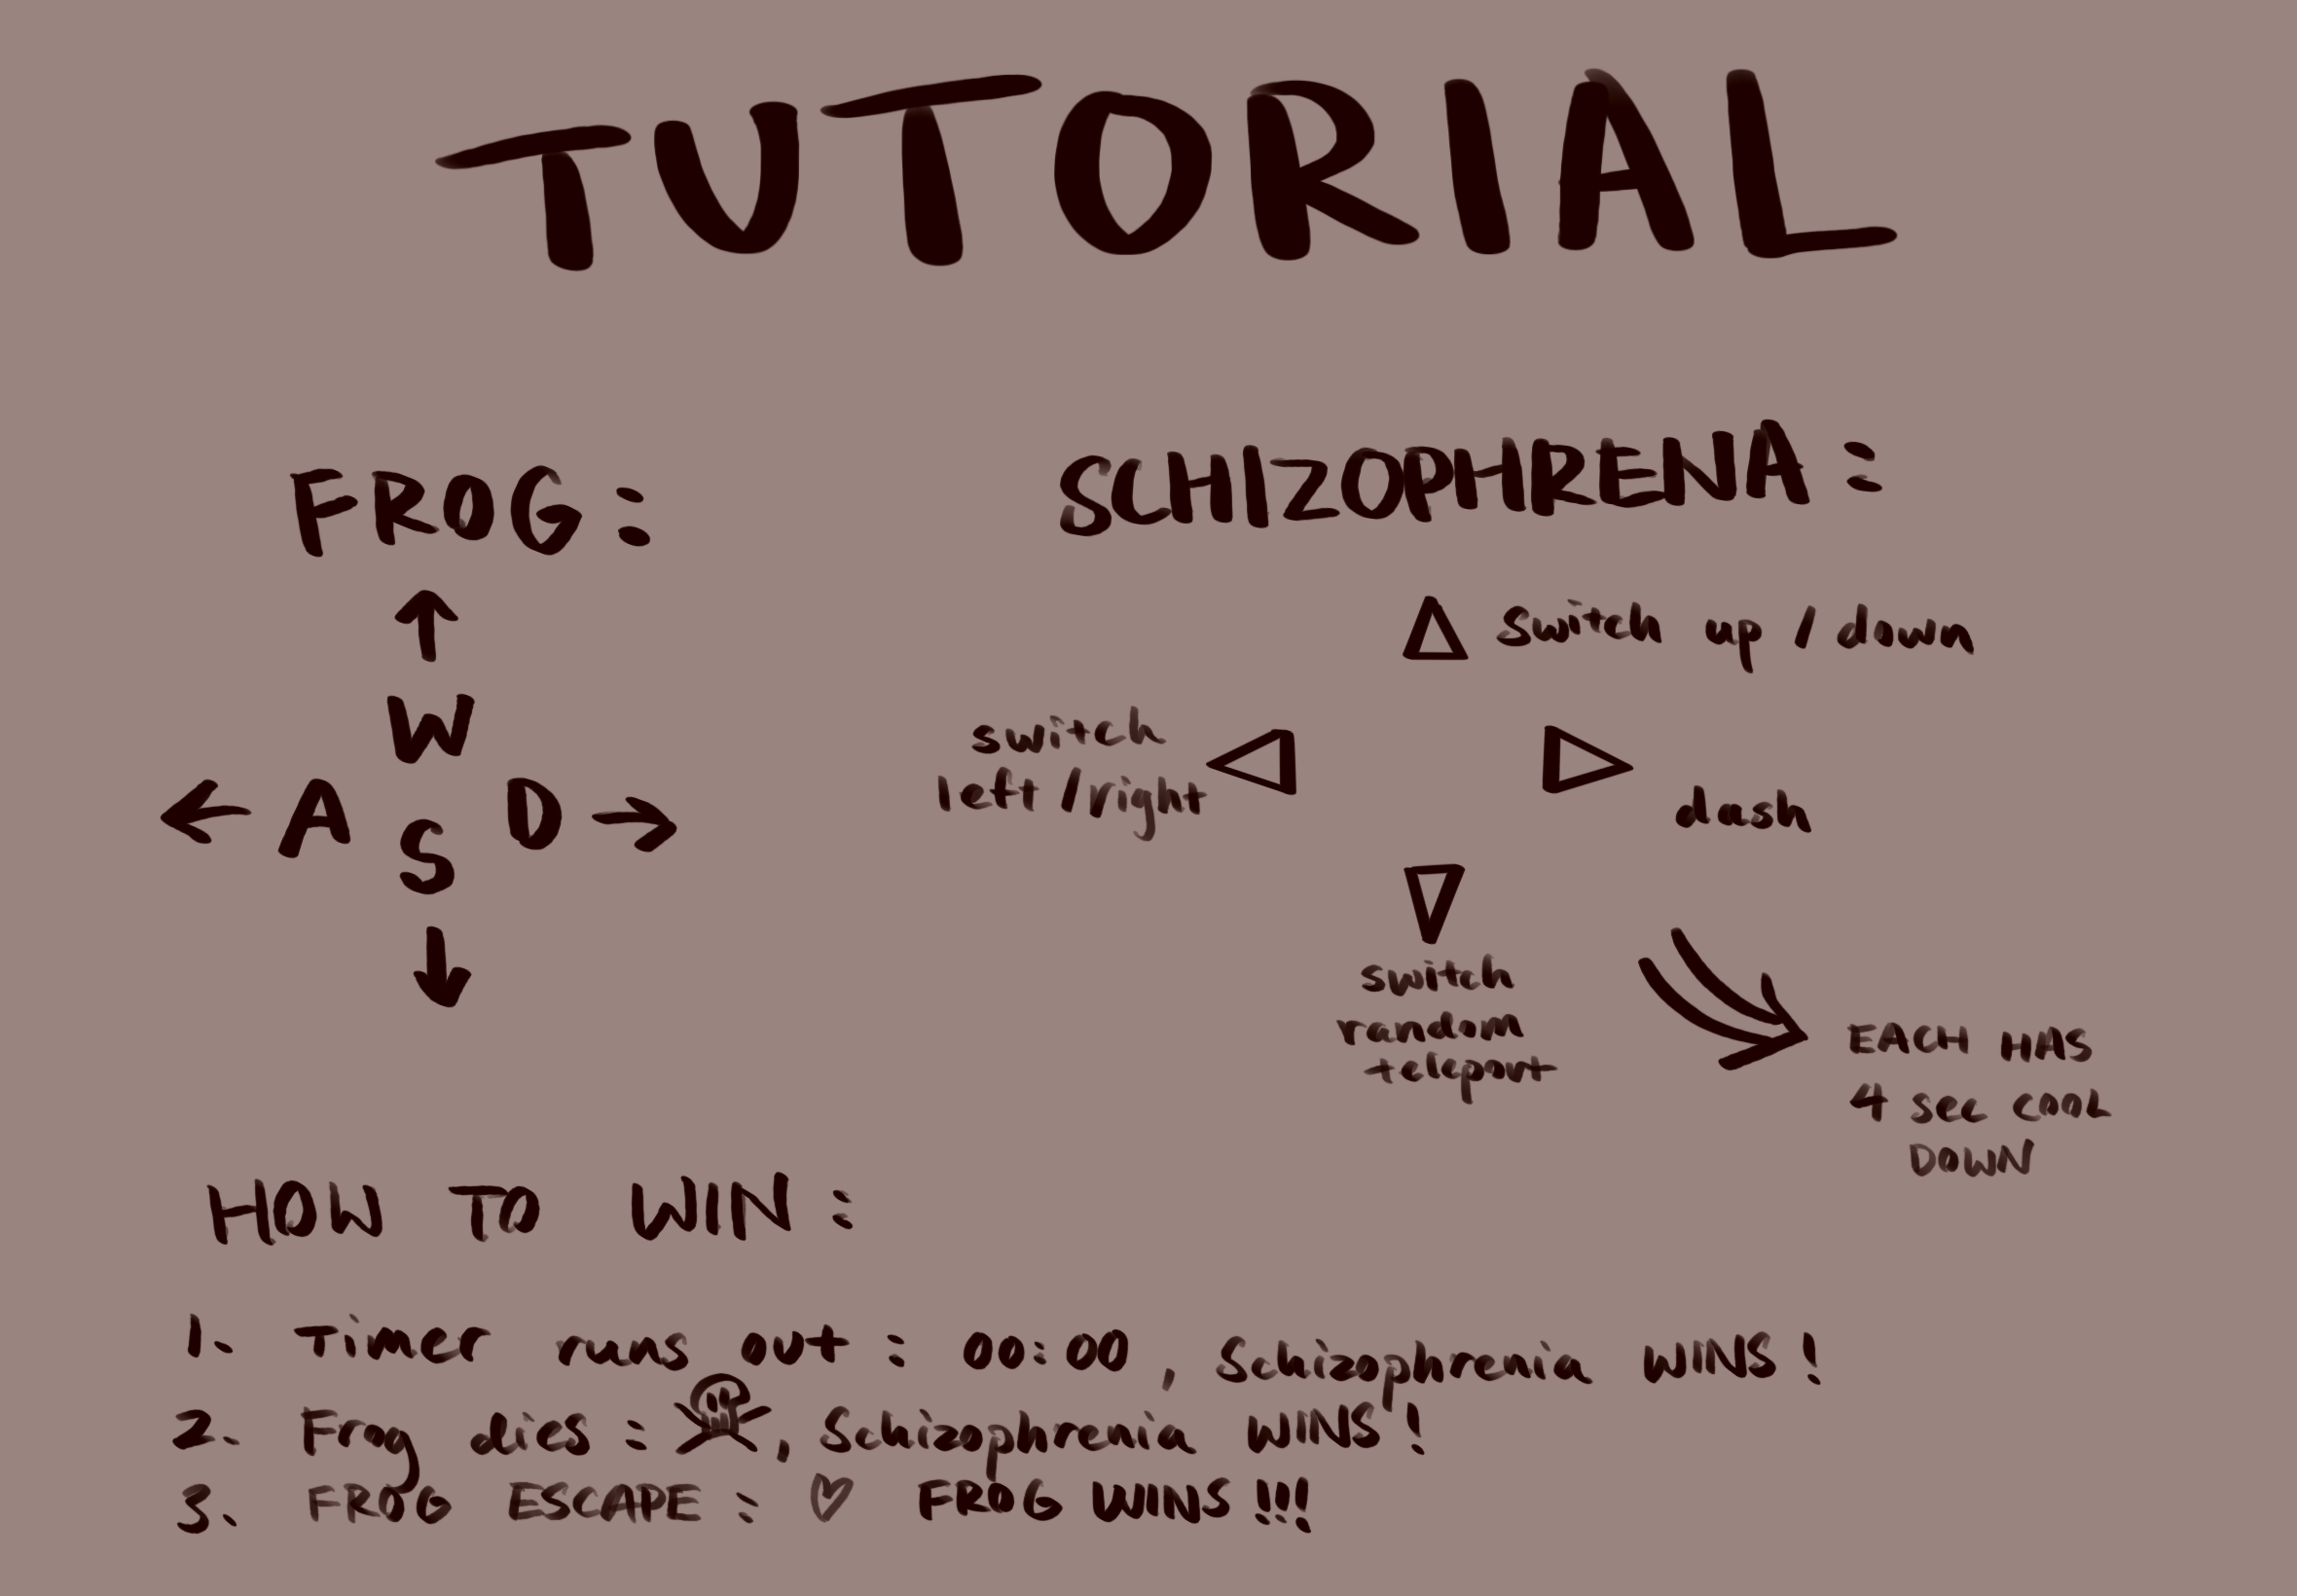 TUTORIAL
FROG:
W
A S D
SCHIZOPHRENA:
switch up / down
switch
left / right
dash
switch
random
teleport
EACH HAS
4 sec cool
DOWN
HOW TO WIN:
1. Timer runs out: 00:00, Schizophrenia WINS!
2. Frog dies: , Schizophrenia WINS!
3. FROG ESCAPE: ♡ FROG WINS!!!